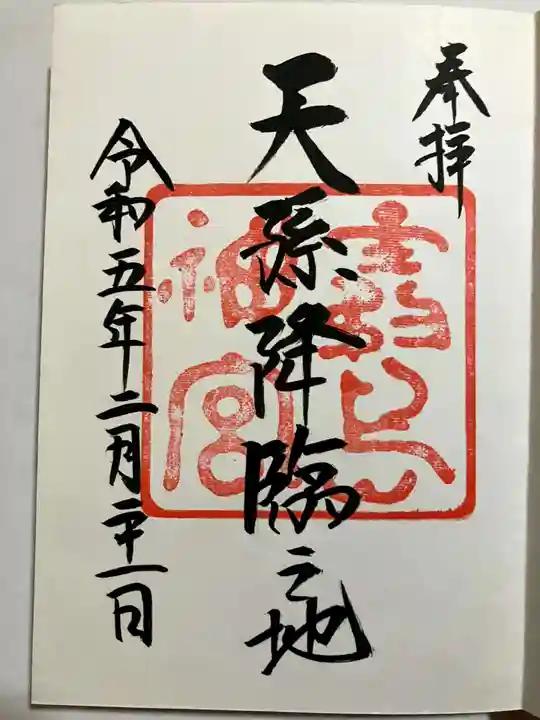 奉拝
天孫降臨之地
霧島神宮
令和五年二月二十一日